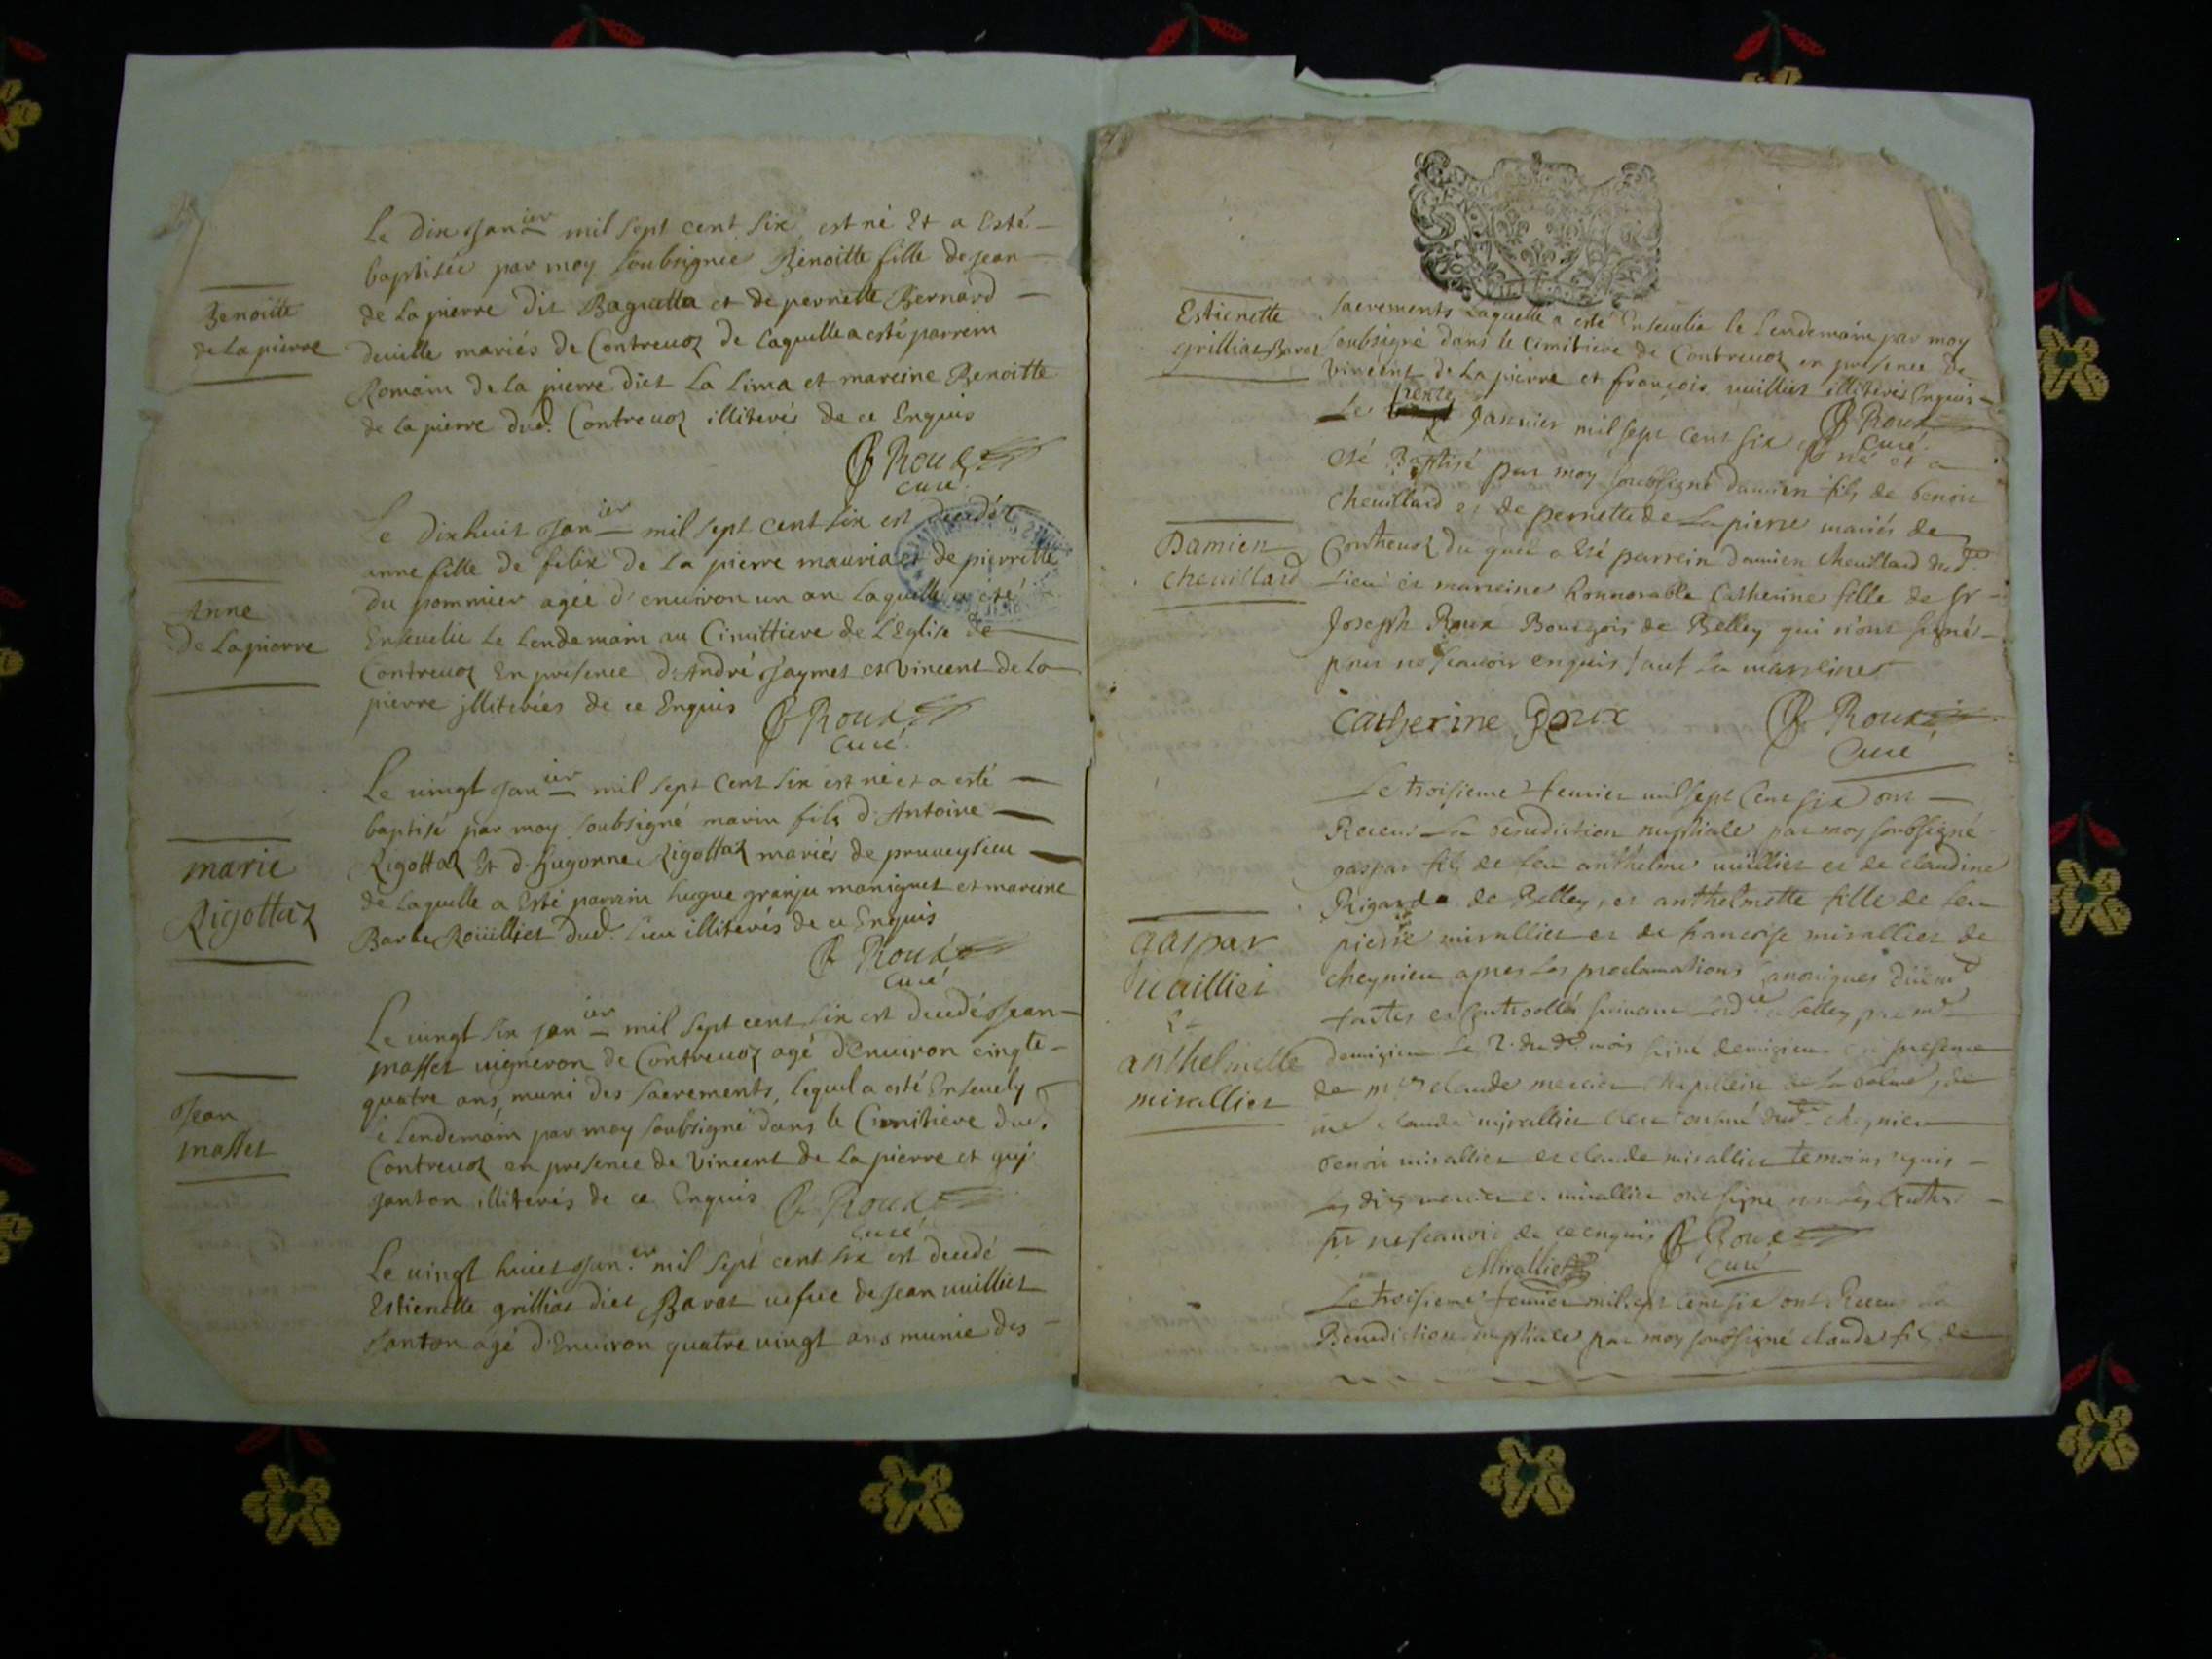 Le dix Janier mil sept cent six est né Et a Esté
baptisée par moy soubsignié Benoitte fille de jean
Benoitte
de La pierre
de La pierre dit Baguetta et de pernette Bernard
deuille mariés de Contreuoz de laquelle a esté parrein
Romain de la pierre dict La Lima et mareine Benoitte
de la pierre dud. Contreuoz illiterés de ce Enquis
Roux
curé
Le dixhuit Janier mil sept cent six est decedée
anne fille de felix de la pierre mauria et de pierrette
du pommier agée d'enuiron un an laquelle a esté
Anne
de Lapierre
Enseuelie le Lendemain au Cimittiere de L'Eglise de
Contreuoz En presence d'André Jaymet et Vincent de la
pierre jlliterées de ce Enquis Roux
curé
Le uingt Janier mil sept cent six est né et a esté
baptisé par moy soubsigné marin fils d'Antoine
marie
Rigottaz
Rigottaz Et d'hugonne Rigottaz mariés de pruueysieu
de Laquelle a Esté parrein hugue granju maniguet et mareine
Barbe Roüilliet dud. lieu illiterés de ce Enquis
Roux
curé
Le uingt six janier mil sept cent six est decedé Jean
masset uigneron de Contreuoz agé d'Enuiron cinqte
quatre ans, muni des sacrements, lequel a esté Enseuely
Jean
masset
le Lendemain par moy soubsigné dans le Cimitiere dud.
Contreuoz en presence de Vincent de la pierre et guy
janton illiterés de ce Enquis Roux
curé
Le uingt huict Jan.er mil sept cent six est decedé
Estienette grilliat dict Barat uefue de Jean uuilliet
Janton agé d'Enuiron quatre uingt ans munie des
Estienette
grilliat Barat
sacrements laquelle a esté Enseuelie le Lendemain par moy
soubsigné dans le Cimitiere de Contreuoz en presence de
Vincent de la pierre et françois uuilliet illiterés Enquis
Roux
curé
Le trente Januier mil sept cent six est né et a
été Baptisé par moy soubsigné damien fils de benoit
cheuillard et de pernette de Lapierre mariés de
Damien
cheuillard
Contreuoz du quel a esté parrein damien cheuillard dud.
Lieu et marreine honnorable Catherine fille de Sr
Joseph Roux Bourgois de Belley qui n'ont signé
pour ne scauoir enquis sauf la marreine
Catherine Roux Roux
Curé
Le troisieme feurier mil sept Cent six ont
Receus La benediction nuptiale par moy soubsigné
gaspar fils de feu anthelme uuilliet et de claudine
gaspar
uuilliet
et
anthelmette
mirallier
Rigard de Belley, et anthelmette fille de feu
pierre mirallier et de francoise mirallier de
cheynieu apres les proclamations canoniques
demigieu Le 2. du mois signé demigieu presence
de claude mercier chapellein de la balme, de
claude mirallier cheynieu
benoit mirallier et claude mirallier temoins requis
Les dits mercier et mirallier ont signé non les autres
ne scauoir de ce enquis Roux
Mirallier curé
Le troisieme feurier mil sept cent six ont Receus La
Benediction nuptiale par moy soubsigné claude fils de